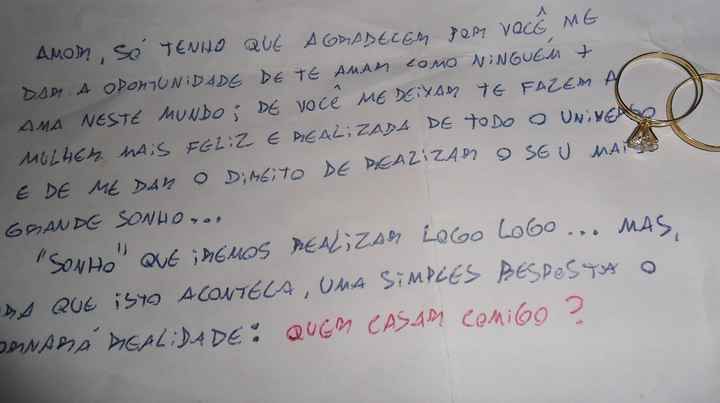 AMOR, SÓ TENHO QUE AGRADECER POR VOCÊ ME
DAR A OPORTUNIDADE DE TE AMAR COMO NINGUÉM +
AMA NESTE MUNDO; DE VOCÊ ME DEIXAR TE FAZER A
MULHER MAIS FELIZ E REALIZADA DE TODO O UNIVERSO
E DE ME DAR O DIREITO DE REALIZAR O SEU MAIS
GRANDE SONHO...
"SONHO" QUE IREMOS REALIZAR LOGO LOGO... MAS,
RA QUE ISTO ACONTEÇA, UMA SIMPLES RESPOSTA O
ORNARÁ REALIDADE: QUER CASAR COMIGO?